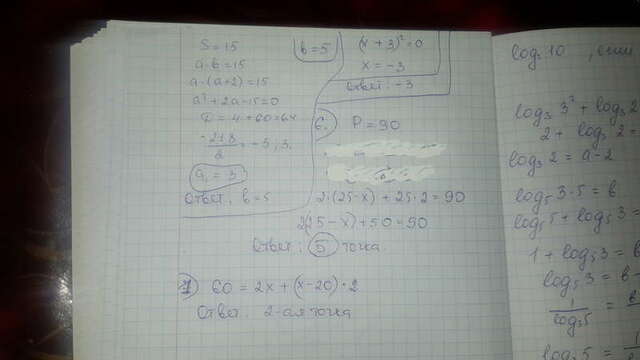 S = 15
a·b = 15
a·(a+2) = 15
a²+2a-15=0
D = 4+60=64
-2±8/2 = -5; 3.
a₁ = 3
Ответ: b=5
b=5
(x+3)²=0
x = -3
Ответ: -3
6. P = 90
2·(25-x) + 25·2 = 90
2(25-x)+50=90
Ответ: 5 точка
7) 60 = 2x + (x-20)·2
Ответ: 2-ая точка
log₅3² + log₅2
2 + log₃2 =
log₃2 = a-2
log₅3·5 = b
log₅5 + log₅3 =
1 + log₅3 = b
log₅3 = b
1/log₃5 =
log₃5 =